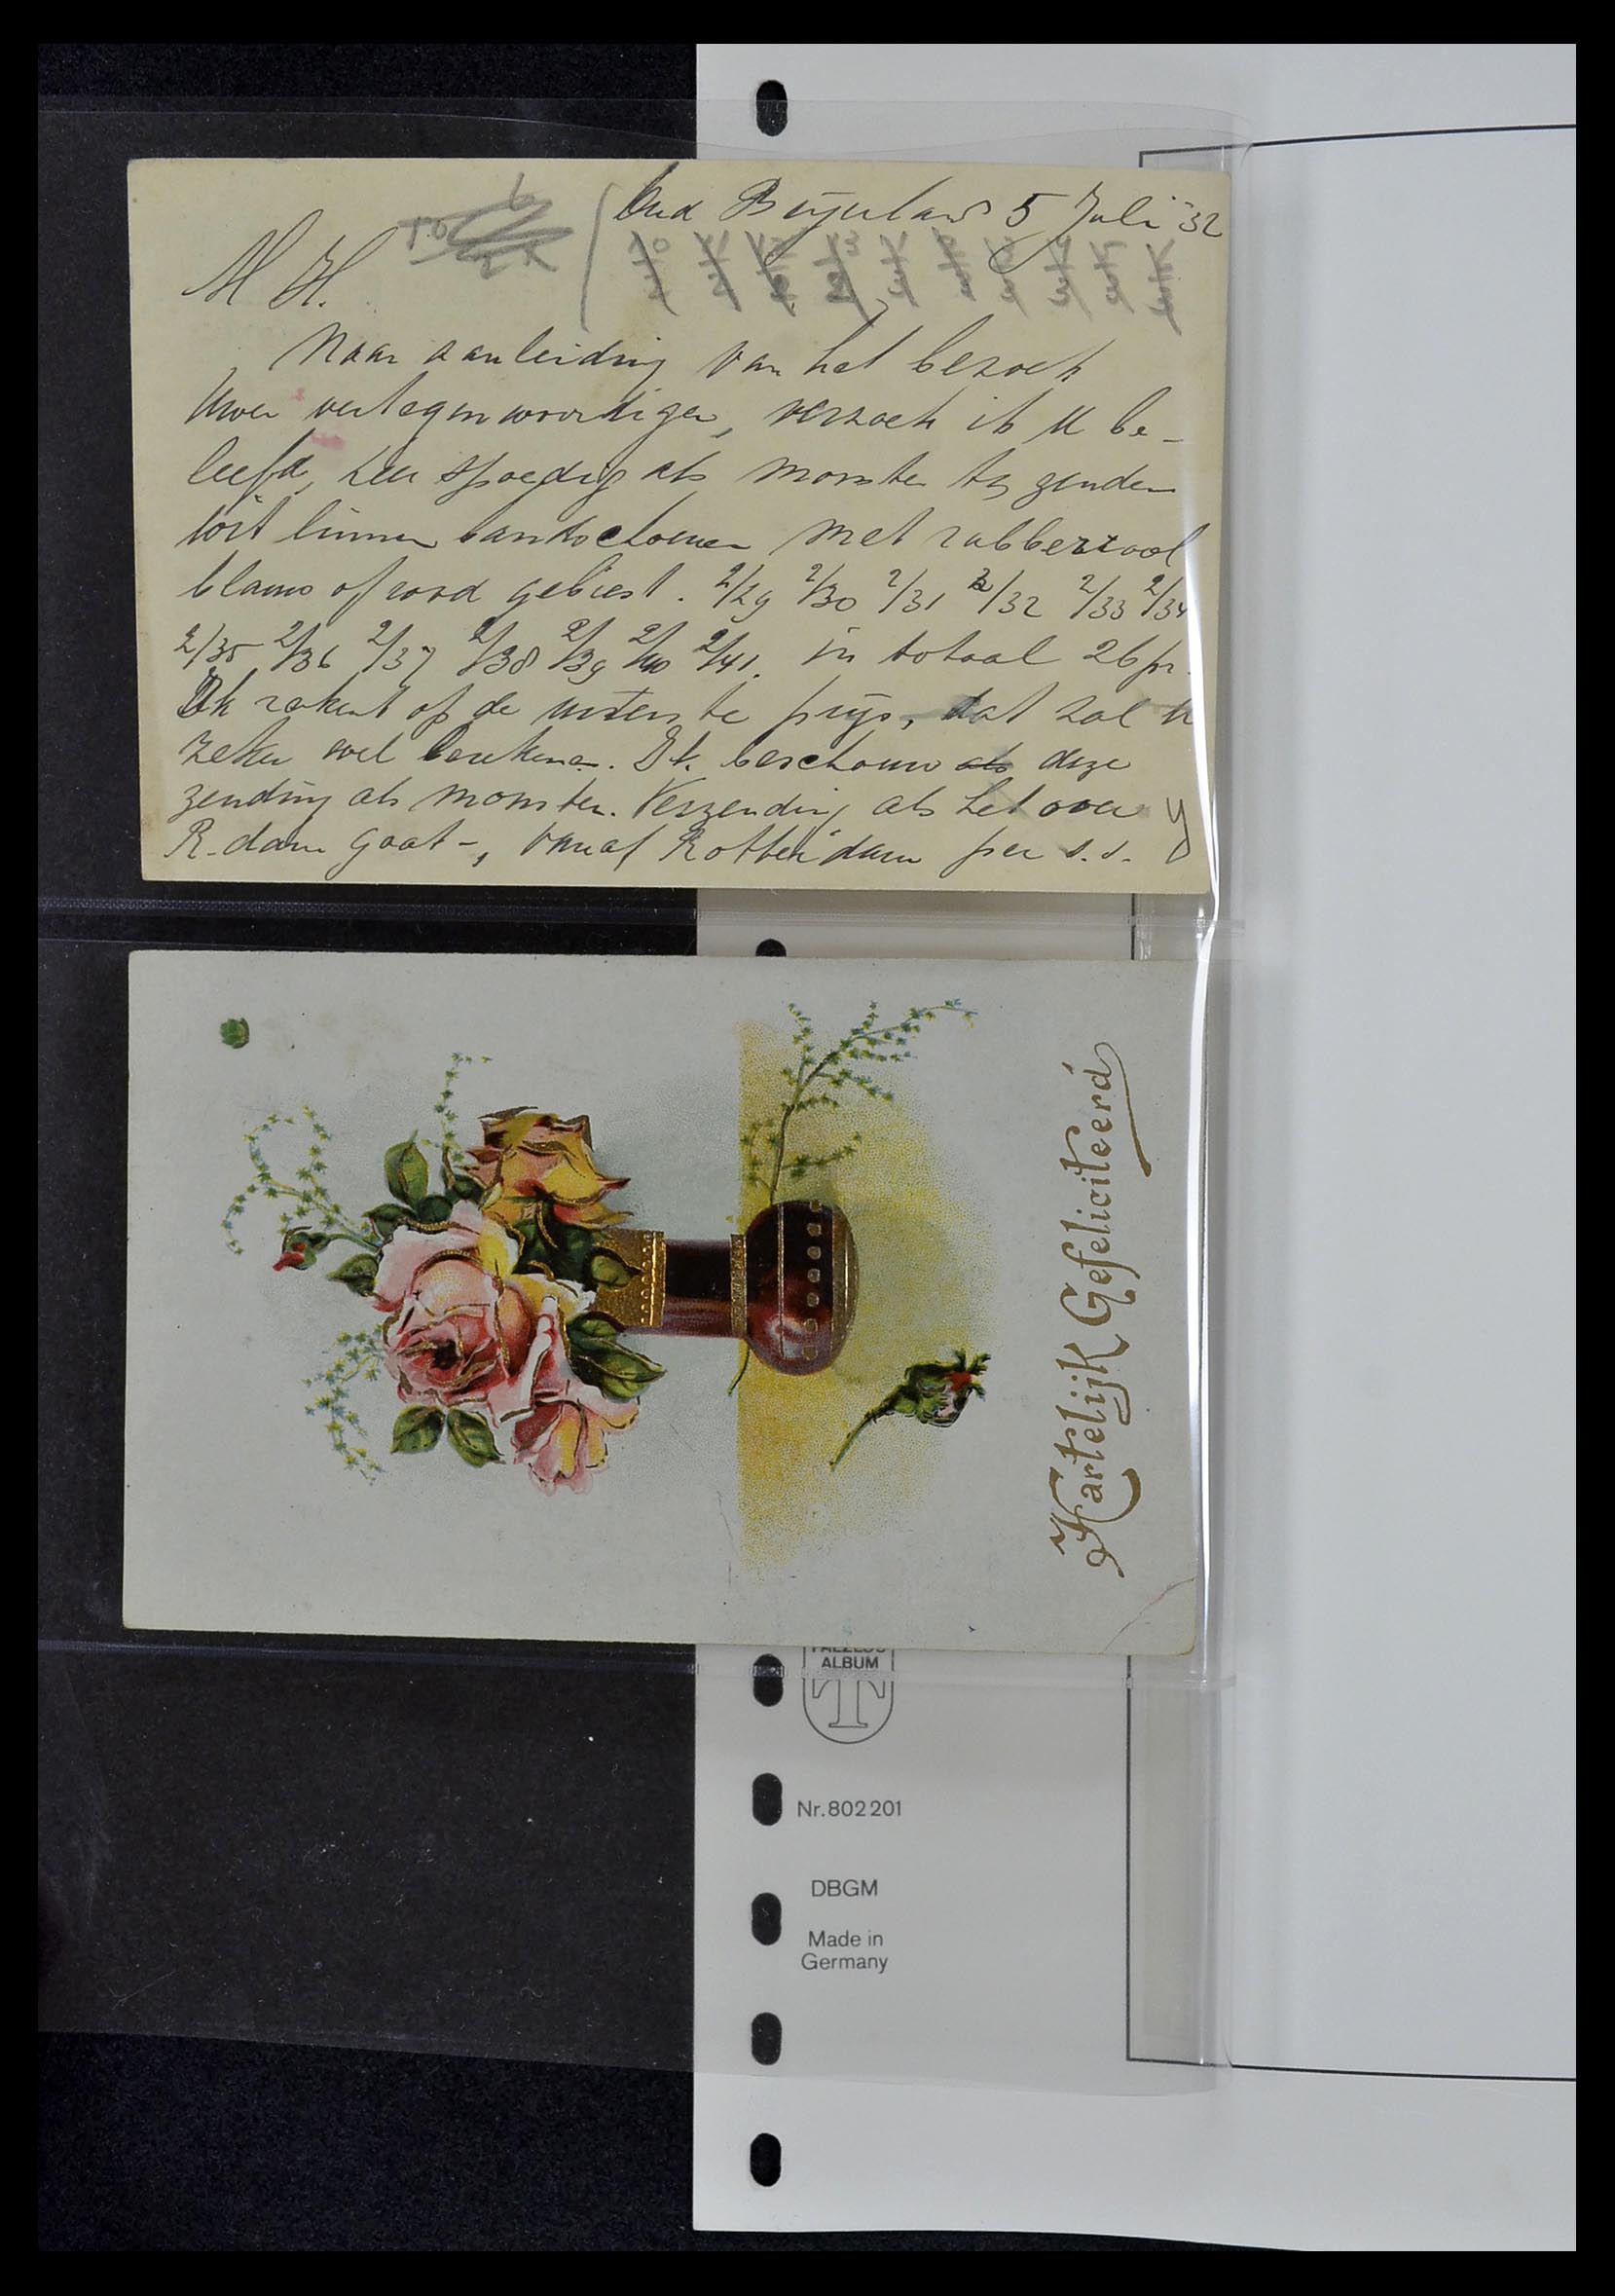 Oud Beijerland 5 Juli '32
M H.
Naar aanleiding van het bezoek
Uwer vertegenwoordiger, verzoek ik U be-
leefd, zeer spoedig als monster te zenden
wit linnen bandschoenen met rubberzool
blauw of rood gebiest. 2/29 2/30 2/31 2/32 2/33 2/34
2/35 2/36 2/37 2/38 2/39 2/40 2/41. in totaal 26 pr.
Ik reken op de uiterste prijs, dat zal U
zeker wel berekenen. Ik beschouw als deze
zending als monster. Verzending als het over
R.dam gaat -, vanaf Rotterdam per s.s.
Hartelijk Gefeliciteerd
ALBUM
T
Nr. 802 201
DBGM
Made in
Germany